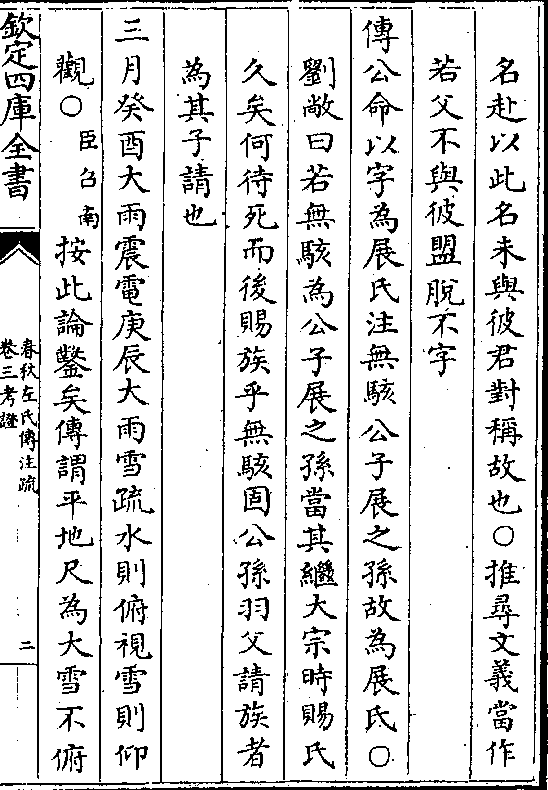 名赴以此名未與彼君對稱故也○推尋文義當作
若父不與彼盟脫不字
傳公命以字為展氏注無駭公子展之孫故為展氏○
劉敞曰若無駭為公子展之孫當其繼大宗時賜氏
久矣何待死而後賜族乎無駭固公孫羽父請族者
為其子請也
三月癸酉大雨震電庚辰大雨雪疏水則俯視雪則仰
觀○臣召南按此論鑿矣傳謂平地尺為大雪不俯
欽定四庫全書
春秋左氏傳注疏
卷三考證
二